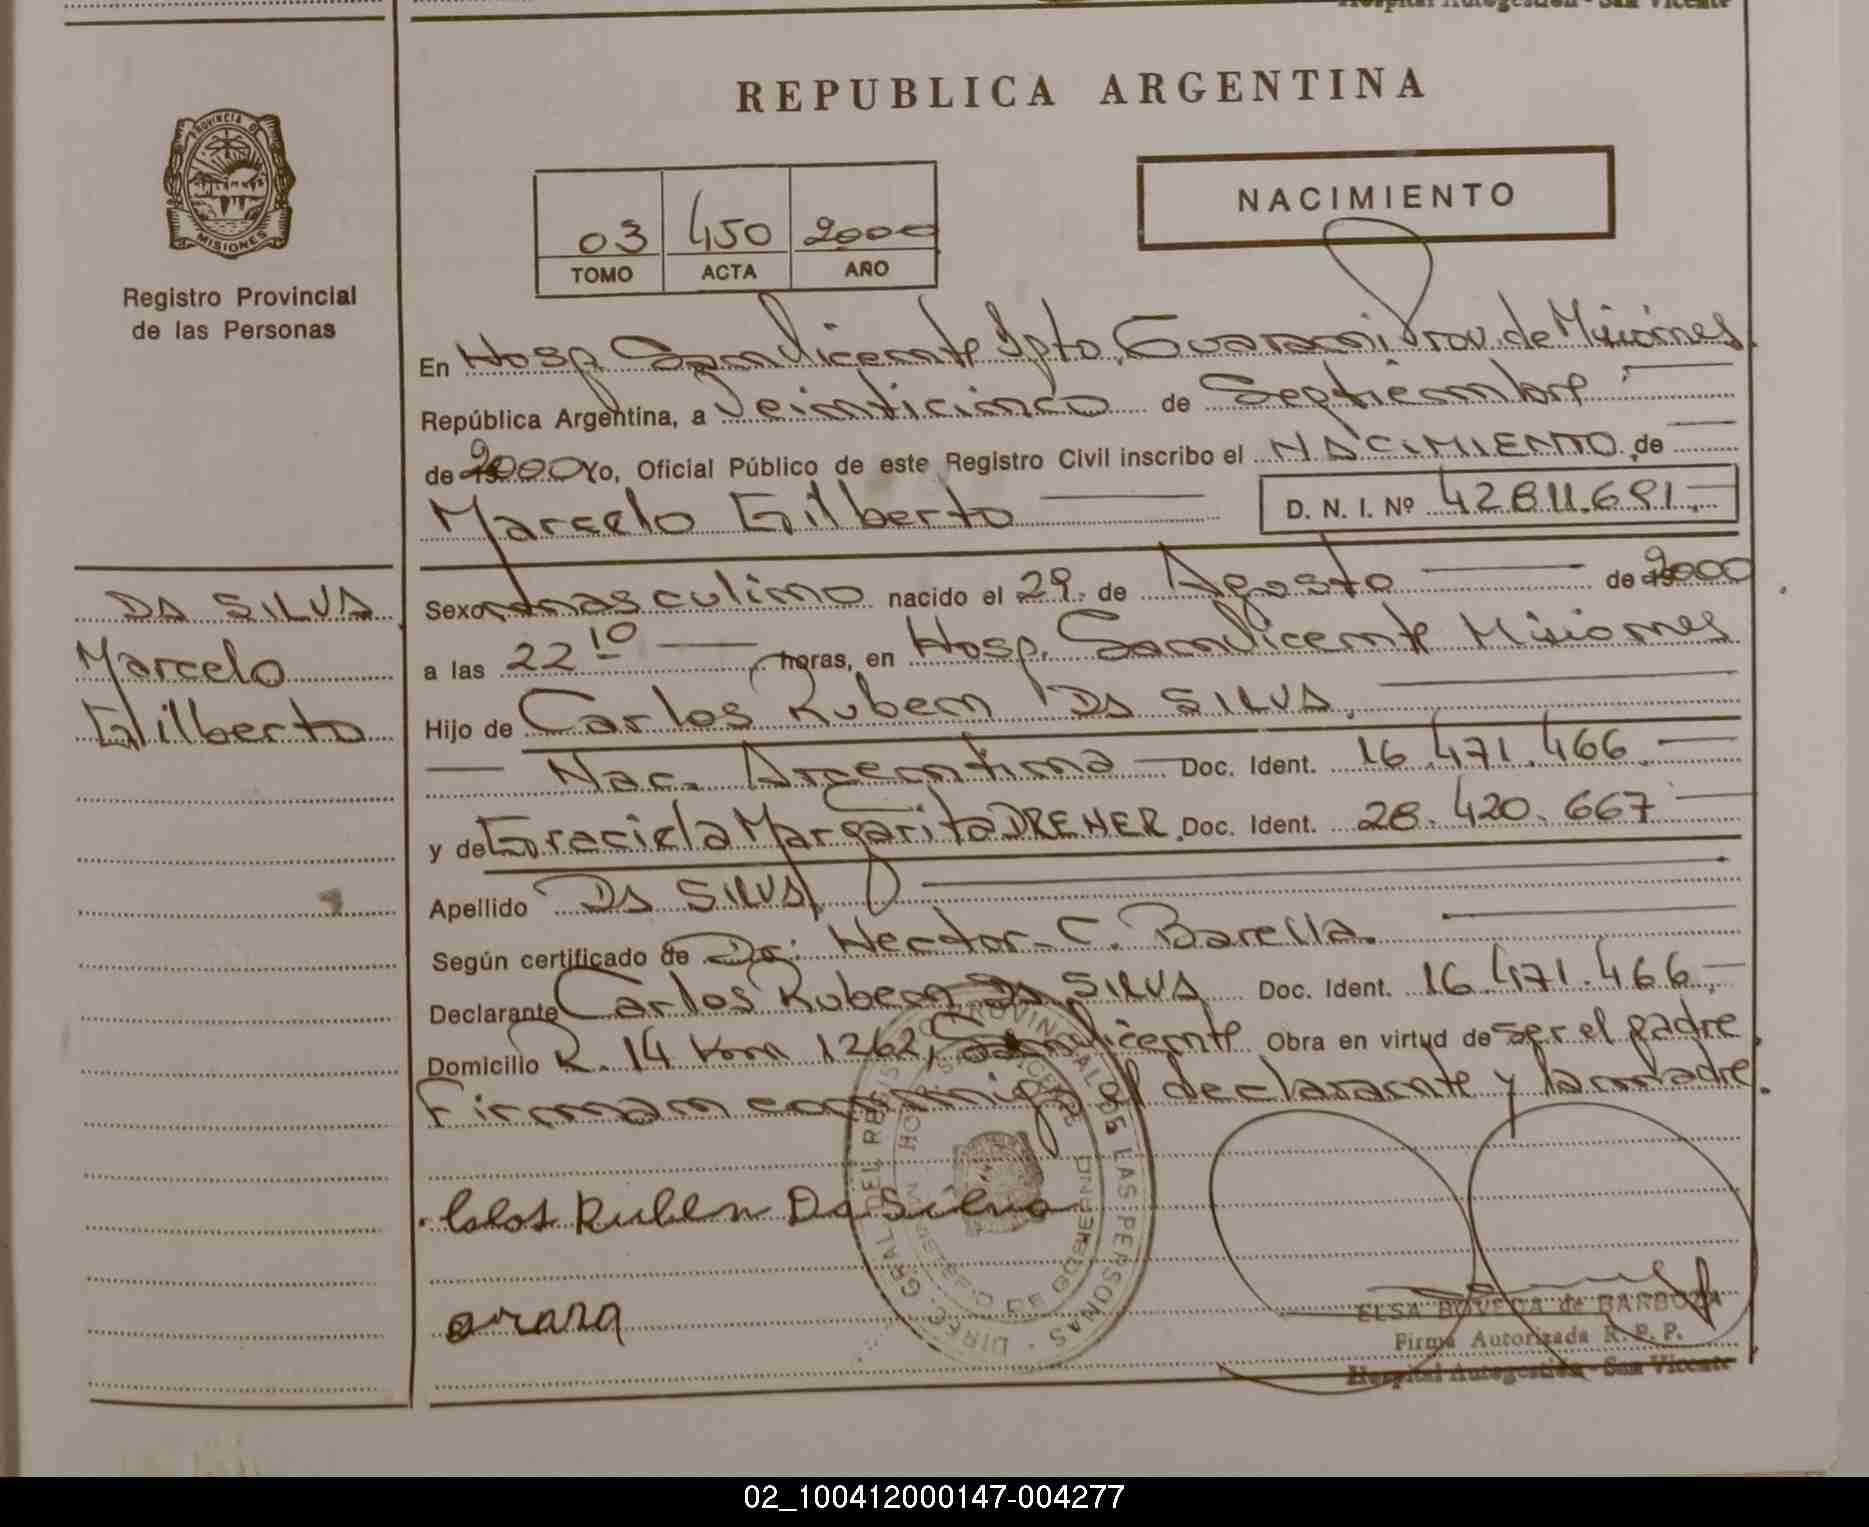 Hospital Autogestión - San Vicente
REPUBLICA ARGENTINA
PROVINCIA DE
MISIONES
Registro Provincial
de las Personas
NACIMIENTO
03 450 2000
TOMO ACTA AÑO
En Hosp. San Vicente Dpto. Guaraní Prov. de Misiones
República Argentina, a Veinticinco de Septiembre
de 2000 Yo, Oficial Público de este Registro Civil inscribo el NACIMIENTO de
Marcelo Gilberto D. N. I. Nº 42.811.691.-
DA SILVA
Marcelo
Gilberto
Sexo masculino nacido el 29 de Agosto de 2000
a las 22 10 horas, en Hosp. San Vicente Misiones
Hijo de Carlos Ruben DA SILVA.
Nac. Argentina Doc. Ident. 16.471.466.
y de Graciela Margarita DREHER. Doc. Ident. 28.420.667
Apellido DA SILVA
Según certificado de Dr. Hector C. Barella.
Declarante Carlos Ruben DA SILVA Doc. Ident. 16.471.466.-
Domicilio R. 14 Km 1262, San Vicente Obra en virtud de ser el padre.
Firman conmigo el declarante y la madre.
DIREC. GRAL. DEL REGISTRO PROVINCIAL DE LAS PERSONAS
Ruben Da Silva
ELSA BOVEDA de BARBOZA
Firma Autorizada R. P. P.
Hospital Autogestión - San Vicente
02_100412000147-004277